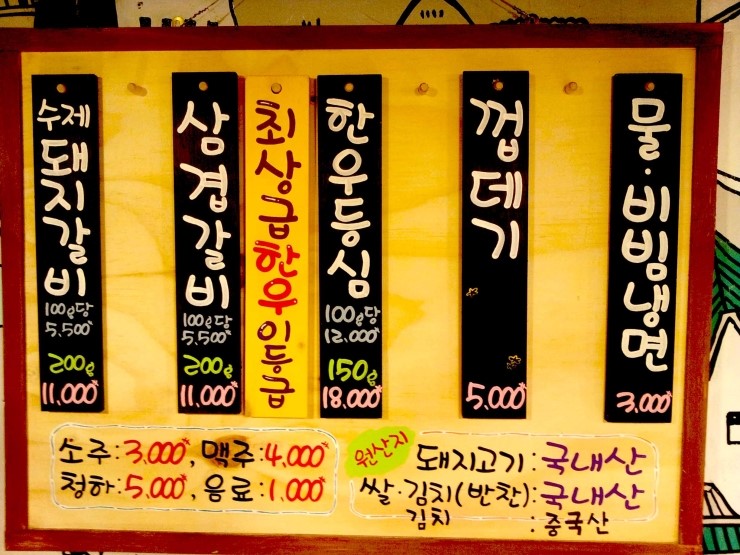 수제돼지갈비
100g당
5,500원
200g
11,000원
삼겹갈비
100g당
5,500원
200g
11,000원
최상급한우1등급
한우등심
100g당
12,000원
150g
18,000원
껍데기
5,000원
물·비빔냉면
3,000원
소주:3,000원, 맥주:4,000원
청하:5,000원, 음료:1,000원
원산지
돼지고기:국내산
쌀·김치(반찬):국내산
김치 :중국산